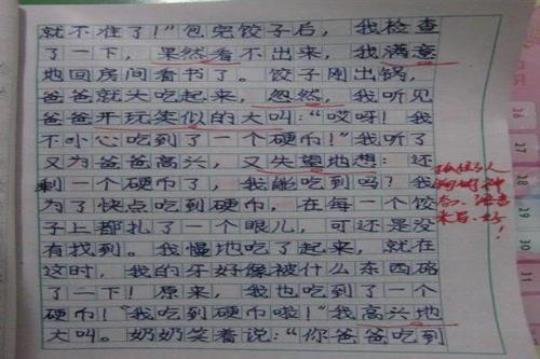 就不准了！”包完饺子后，我检查
了一下，果然看不出来，我满意
地回房间看书了。饺子刚出锅，
爸爸就大吃起来，忽然，我听见
爸爸开玩笑似的大叫：“哎呀！我
不小心吃到了一个硬币！”我听了
又为爸爸高兴，又失望地想：还
剩一个硬币了，我能吃到吗？我
为了快点吃到硬币，在每一个饺
子上都扎了一个眼儿，可还是没
有找到。我慢地吃了起来，就在
这时，我的牙好像被什么东西硌
了一下！原来，我也吃到了一个
硬币！“我吃到硬币啦！”我高兴地
大叫。奶奶笑着说：“你爸爸吃到
26
27
28
29
30
31